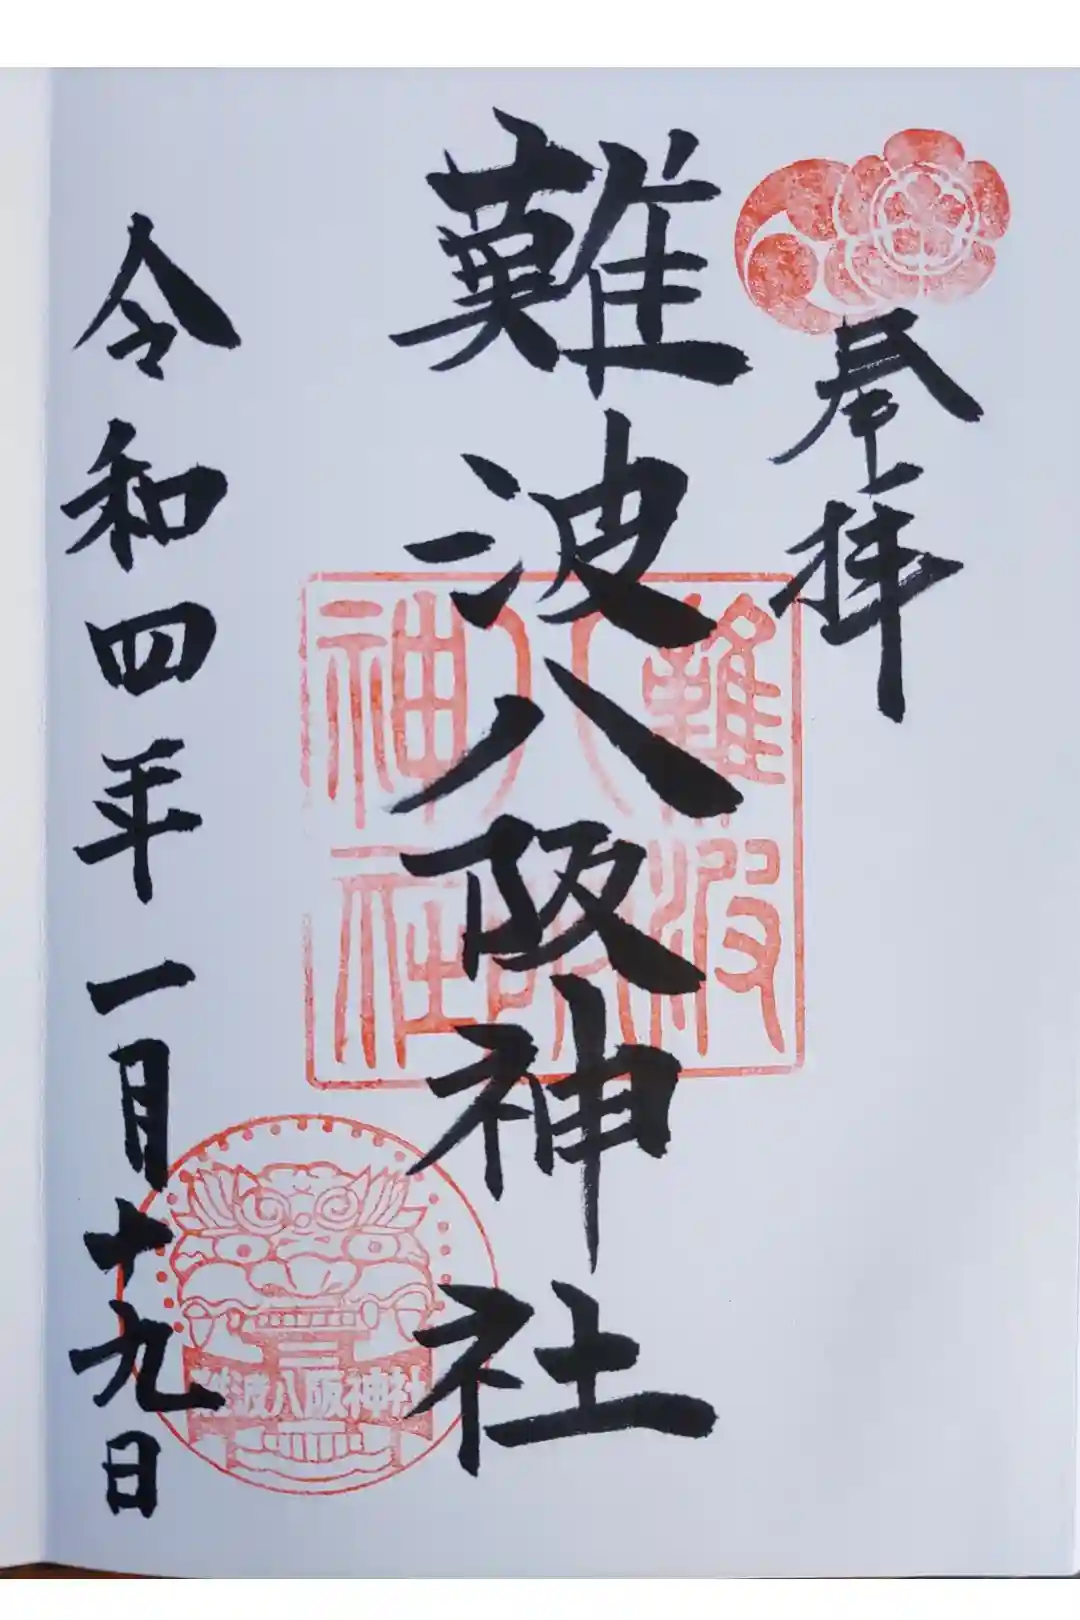 奉拝
難波八阪神社
令和四年一月十九日
難波
八阪
神社
難波八阪神社